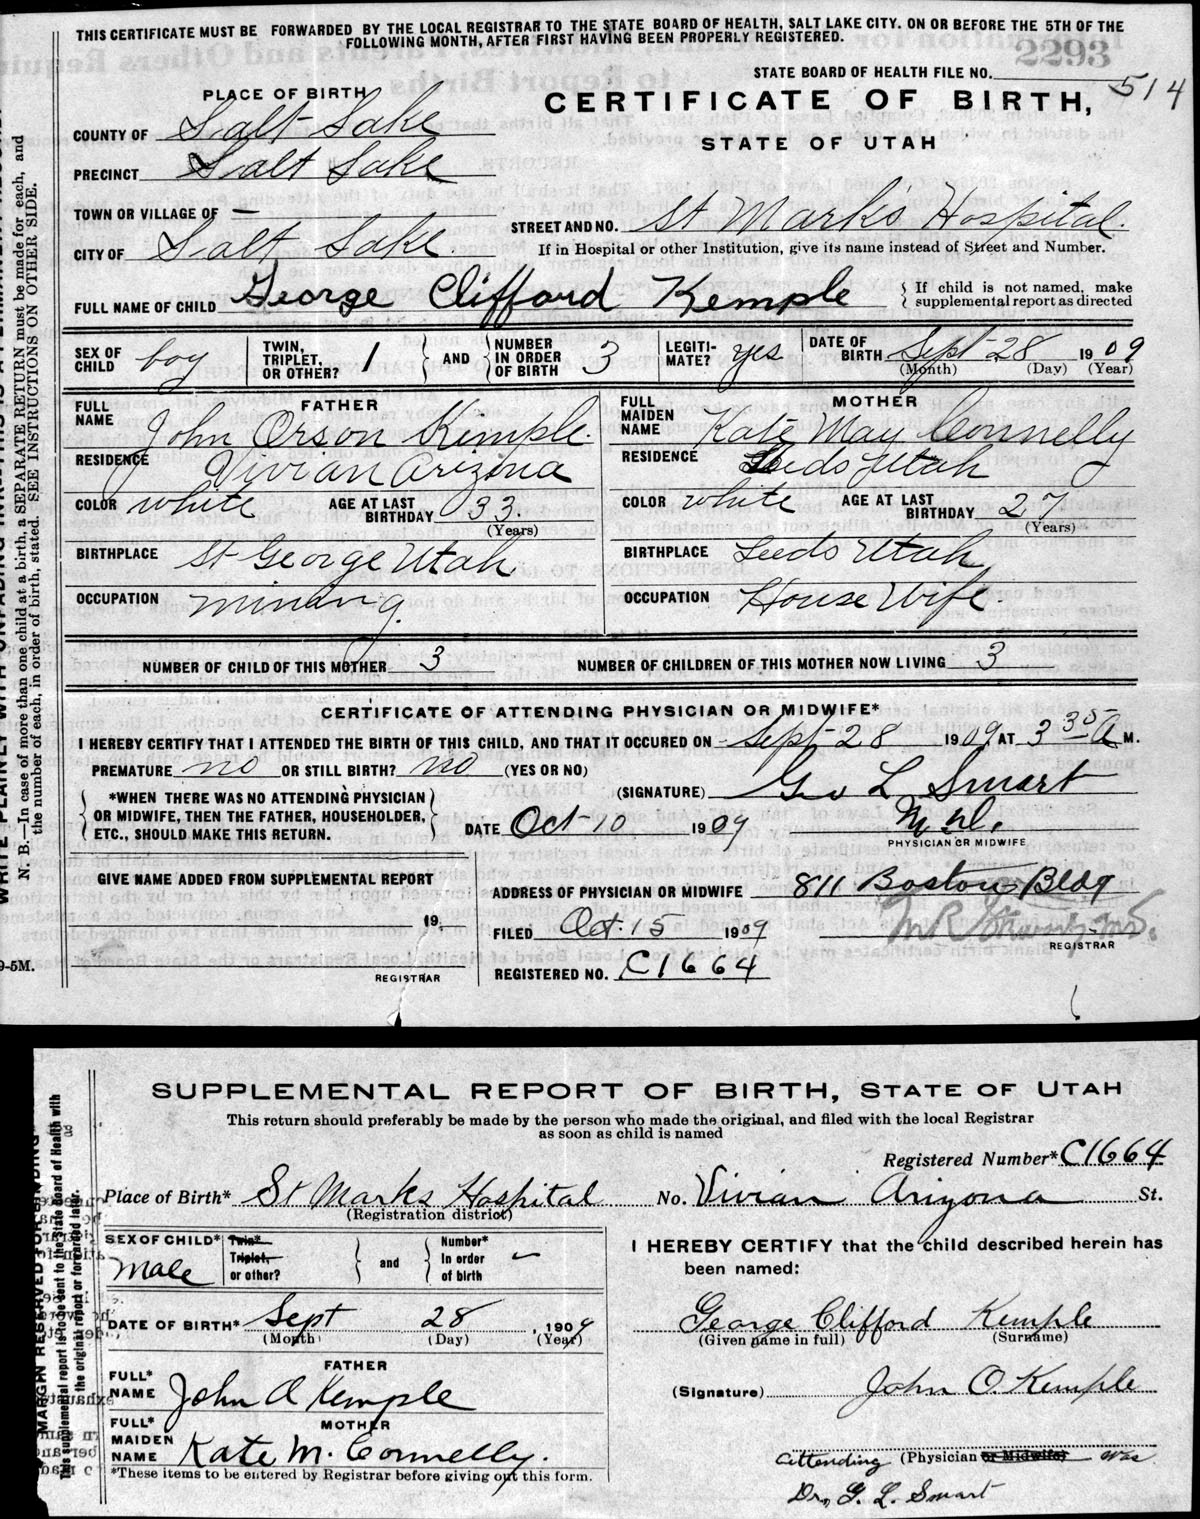 THIS CERTIFICATE MUST BE FORWARDED BY THE LOCAL REGISTRAR TO THE STATE BOARD OF HEALTH, SALT LAKE CITY, ON OR BEFORE THE 5TH OF THE
FOLLOWING MONTH, AFTER FIRST HAVING BEEN PROPERLY REGISTERED.
2293
STATE BOARD OF HEALTH FILE NO. 514
PLACE OF BIRTH
CERTIFICATE OF BIRTH,
STATE OF UTAH
COUNTY OF Salt Lake
PRECINCT Salt Lake
TOWN OR VILLAGE OF —
STREET AND NO. St Mark's Hospital.
CITY OF Salt Lake
If in Hospital or other Institution, give its name instead of Street and Number.
FULL NAME OF CHILD George Clifford Kemple
If child is not named, make supplemental report as directed
SEX OF CHILD boy TWIN, TRIPLET, OR OTHER? 1 AND NUMBER IN ORDER OF BIRTH 3 LEGITIMATE? yes DATE OF BIRTH Sept 28 1909
(Month) (Day) (Year)
FATHER
FULL NAME John Orson Kimple.
RESIDENCE Vivian Arizona
COLOR white AGE AT LAST BIRTHDAY 33. (Years)
BIRTHPLACE St George Utah.
OCCUPATION mining.
MOTHER
FULL MAIDEN NAME Kate May Connelly
RESIDENCE Leeds Utah
COLOR white AGE AT LAST BIRTHDAY 27 (Years)
BIRTHPLACE Leeds Utah
OCCUPATION House Wife.
NUMBER OF CHILD OF THIS MOTHER 3 NUMBER OF CHILDREN OF THIS MOTHER NOW LIVING 3
CERTIFICATE OF ATTENDING PHYSICIAN OR MIDWIFE*
I HEREBY CERTIFY THAT I ATTENDED THE BIRTH OF THIS CHILD, AND THAT IT OCCURED ON Sept 28 1909 AT 3 35 A M.
PREMATURE no OR STILL BIRTH? no (YES OR NO)
(SIGNATURE) Geo L Smart
M.D.
PHYSICIAN OR MIDWIFE
*WHEN THERE WAS NO ATTENDING PHYSICIAN
OR MIDWIFE, THEN THE FATHER, HOUSEHOLDER,
ETC., SHOULD MAKE THIS RETURN.
DATE Oct 10 1909
GIVE NAME ADDED FROM SUPPLEMENTAL REPORT
19
REGISTRAR
ADDRESS OF PHYSICIAN OR MIDWIFE 811 Boston Bldg
FILED Oct. 15 1909
REGISTRAR
REGISTERED NO. C1664
N. B.—In case of more than one child at a birth, a SEPARATE RETURN must be made for each, and
the number of each, in order of birth, stated. SEE INSTRUCTIONS ON OTHER SIDE.
9-5M.
SUPPLEMENTAL REPORT OF BIRTH, STATE OF UTAH
This return should preferably be made by the person who made the original, and filed with the local Registrar
as soon as child is named
Registered Number* C1664
Place of Birth* St Marks Hospital No. Vivian Arizona St.
(Registration district)
SEX OF CHILD* Male Twin* Triplet, or other? and Number* In order of birth
DATE OF BIRTH* Sept 28, 1909
(Month) (Day) (Year)
FATHER
FULL* NAME John O Kemple
MOTHER
FULL* MAIDEN NAME Kate M. Connelly.
*These items to be entered by Registrar before giving out this form.
I HEREBY CERTIFY that the child described herein has
been named:
George Clifford Kemple
(Given name in full) (Surname)
(Signature) John O. Kemple
Attending (Physician or Midwife) was
Dr, G. L. Smart
MARGIN RESERVED FOR BINDING
This supplemental report is to be sent to the State Board of Health with
the original report or forwarded later.